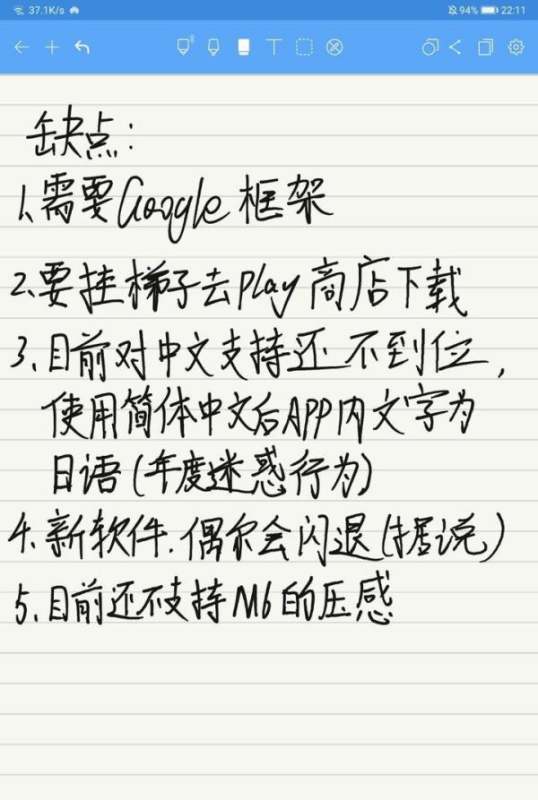 37.1K/s
94% 22:11
缺点:
1.需要Google框架
2.要挂梯子去play商店下载
3.目前对中文支持还不到位,
使用简体中文后APP内文字为
日语(年度迷惑行为)
4.新软件.偶尔会闪退(据说)
5.目前还不支持M6的压感